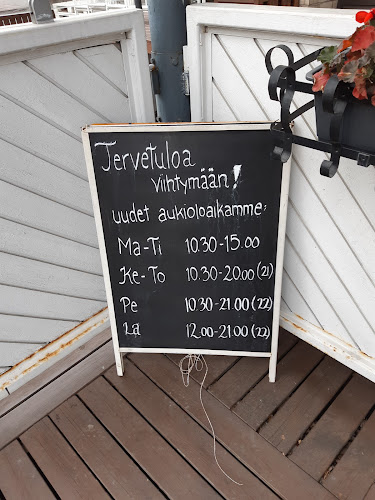 Tervetuloa
viihtymään!
uudet aukioloaikamme:
Ma-Ti 10.30-15.00
Ke-To 10.30-20.00 (21)
Pe 10.30-21.00 (22)
La 12.00-21.00 (22)